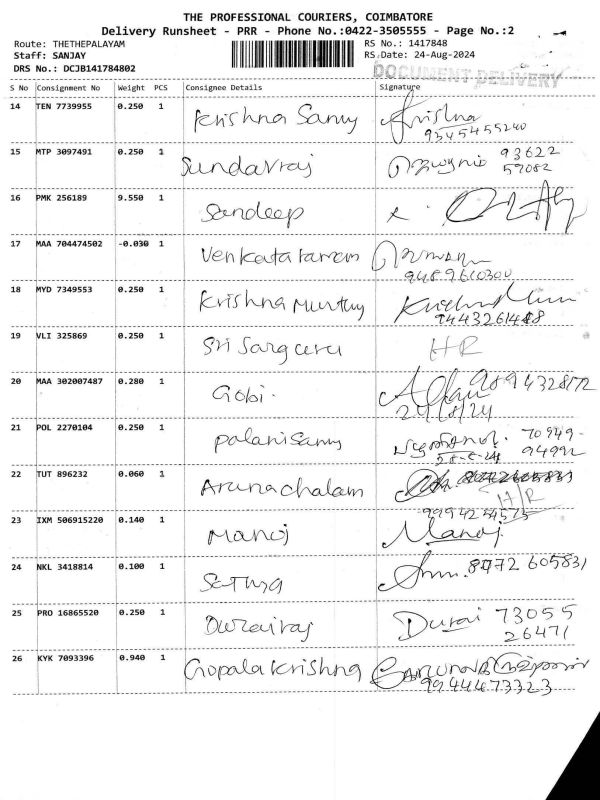 THE PROFESSIONAL COURIERS, COIMBATORE
Delivery Runsheet - PRR - Phone No.:0422-3505555 - Page No.:2
Route: THETHEPALAYAM
RS No.: 1417848
Staff: SANJAY
RS.Date: 24-Aug-2024
DRS No.: DCJB141784802
DOCUMENT DELIVERY
S No Consignment No Weight PCS Consignee Details Signature
14 TEN 7739955 0.250 1 Krishna Samy Krishna
9345455240
15 MTP 3097491 0.250 1 Sundarraj 93622
57082
16 PMK 256189 9.550 1 Sandeep
17 MAA 704474502 -0.030 1 Venkata ramam
9489610300
18 MYD 7349553 0.250 1 Krishna Murthy
9443261488
19 VLI 325869 0.250 1 Sri Sargueru HR
20 MAA 302007487 0.280 1 Gobi. 9894328172
24/8/24
21 POL 2270104 0.250 1 palanisamy 70949-
94992
22 TUT 896232 0.060 1 Arunachalam
H/R
9994254575
23 IXM 506915220 0.140 1 Manoj Manoj
24 NKL 3418814 0.100 1 8072 605831
25 PRO 16865520 0.250 1 Durairaj Durai 73055
26471
26 KYK 7093396 0.940 1 Gopala krishna
9944473323